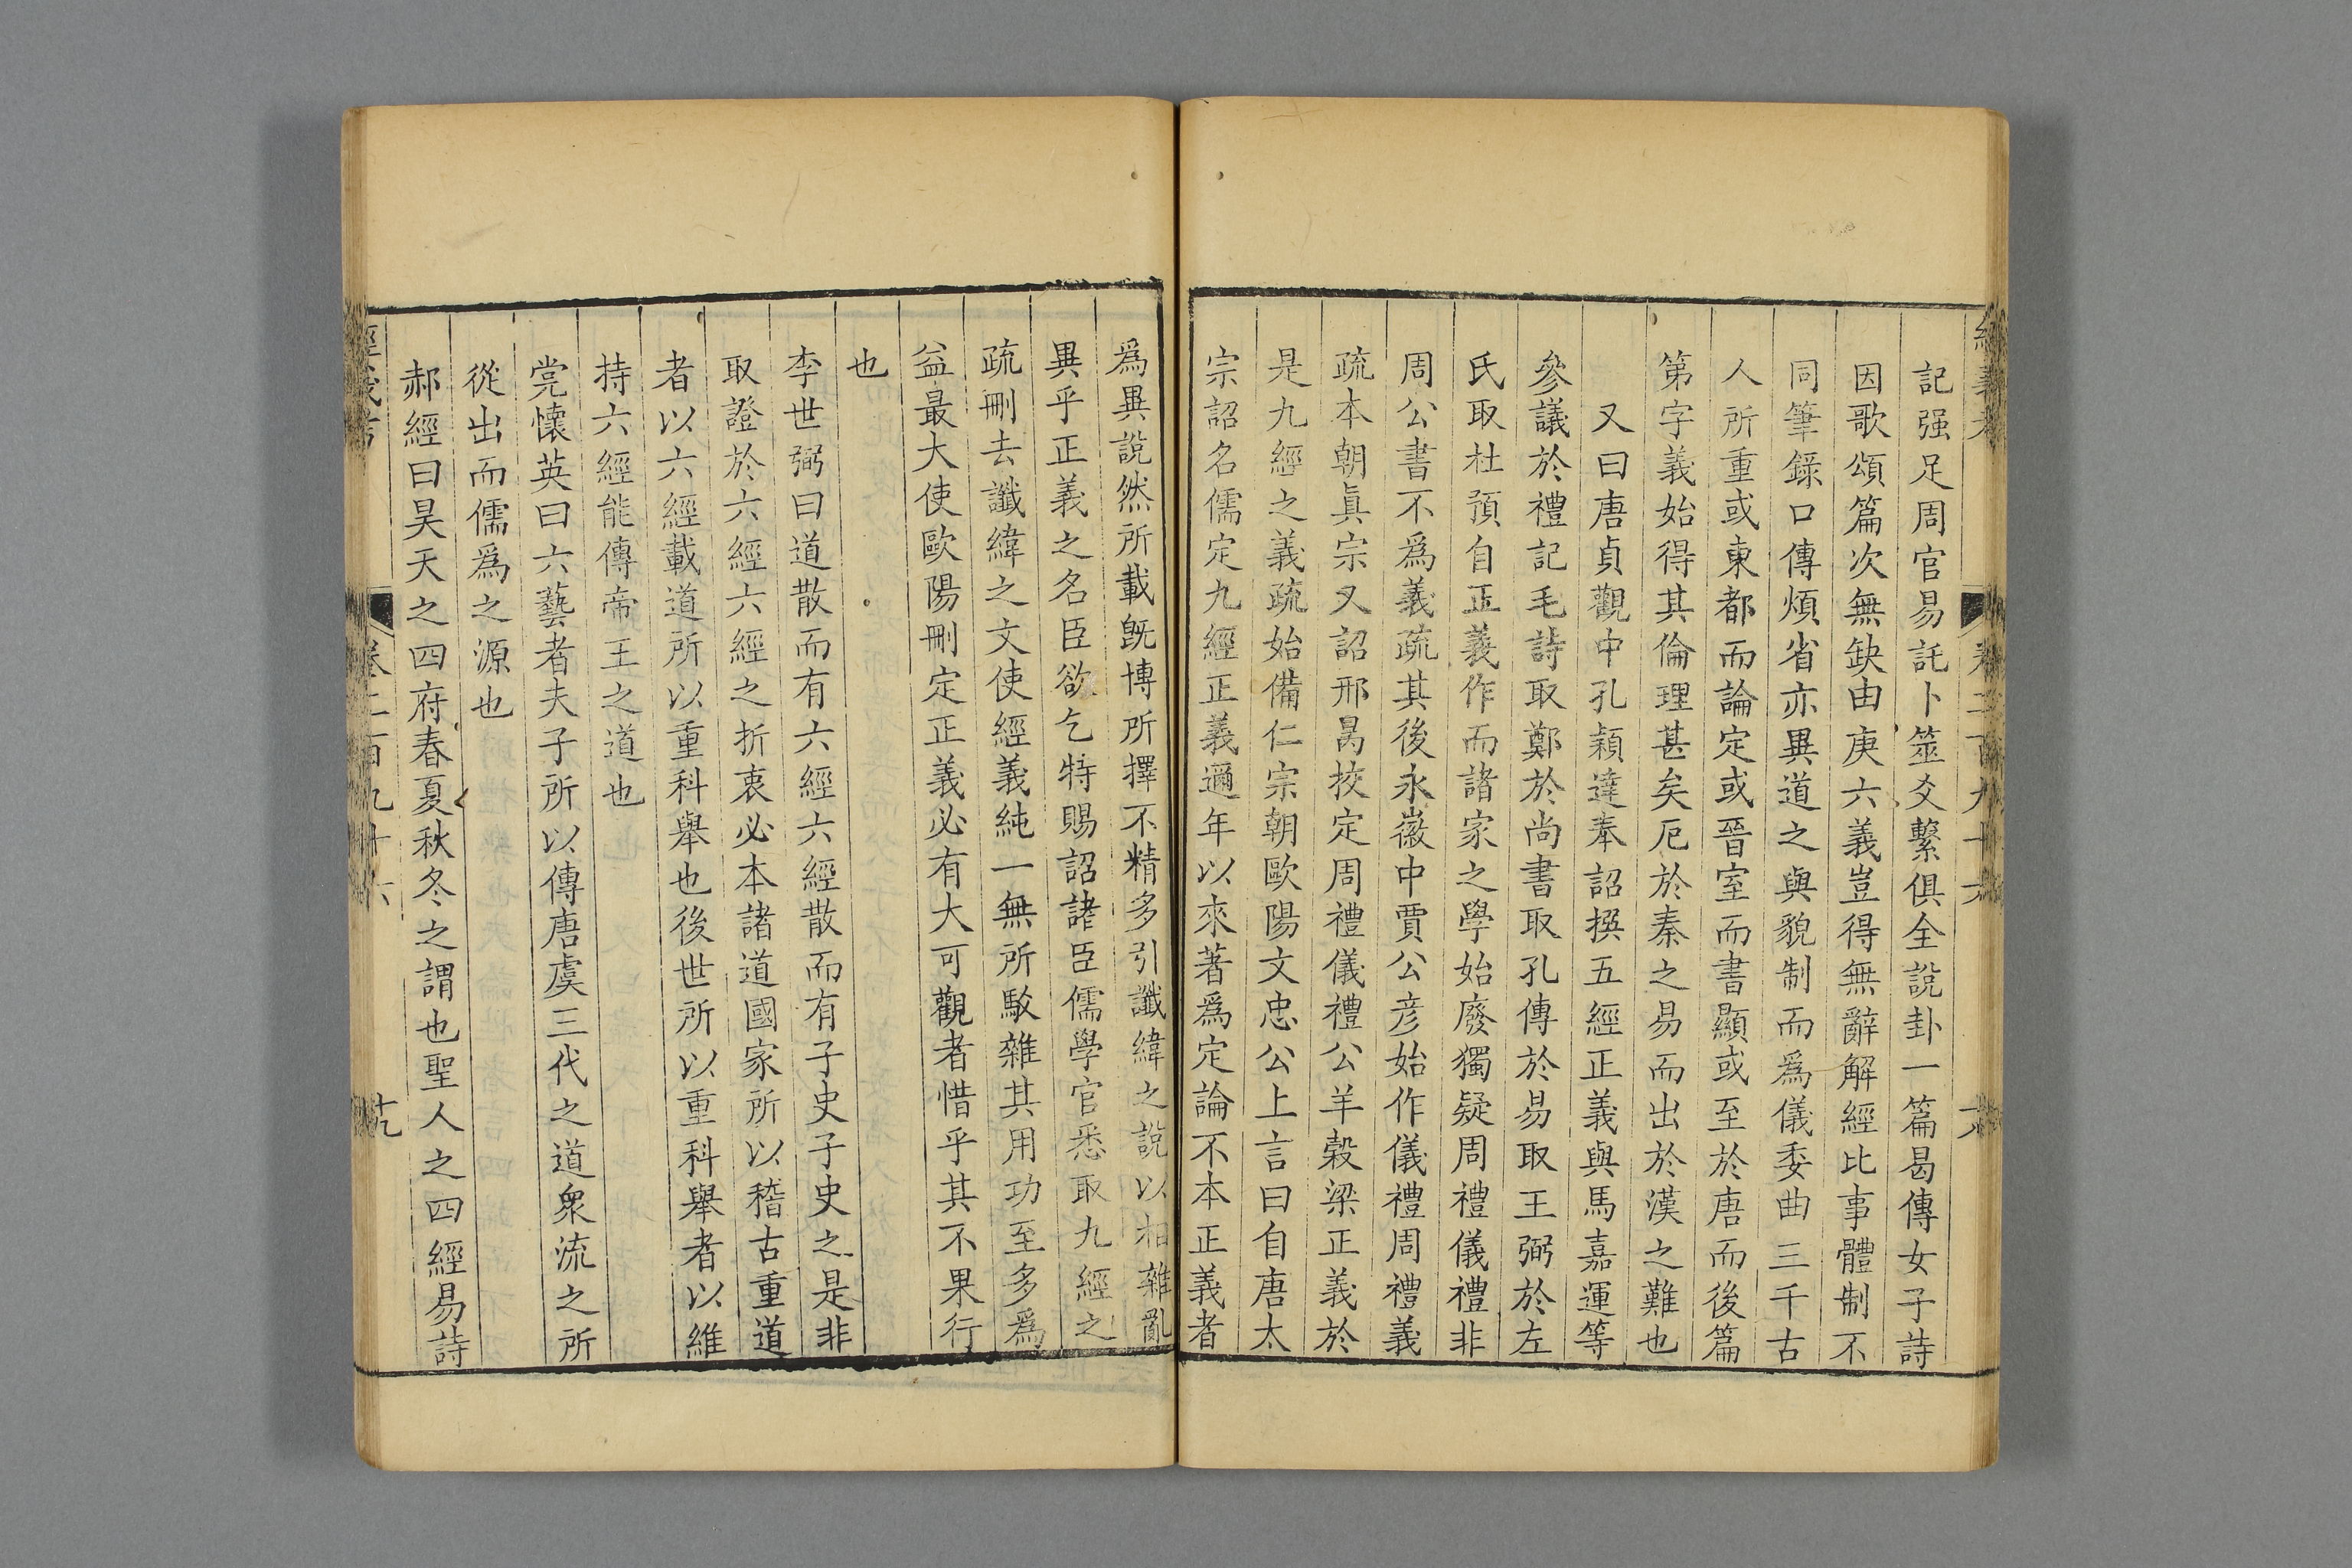 記强足周官易託卜筮爻繫俱全說卦一篇曷傳女子詩
因歌頌篇次無缺由庚六義豈得無辭解經比事體制不
同筆錄口傳煩省亦異道之與貌制而爲儀委曲三千古
人所重或東都而論定或晉室而書顯或至於唐而後篇
第字義始得其倫理甚矣厄於秦之易而出於漢之難也
又曰唐貞觀中孔穎達奉詔撰五經正義與馬嘉運等
參議於禮記毛詩取鄭於尚書取孔傳於易取王弼於左
氏取杜預自正義作而諸家之學始廢獨疑周禮儀禮非
周公書不爲義疏其後永徽中賈公彥始作儀禮周禮義
疏本朝眞宗又詔邢昺挍定周禮儀禮公羊穀梁正義於
是九經之義疏始備仁宗朝歐陽文忠公上言曰自唐太
宗詔名儒定九經正義邇年以來著爲定論不本正義者
爲異說然所載旣博所擇不精多引讖緯之說以相雜亂
異乎正義之名臣欲乞特賜詔諸臣儒學官悉取九經之
疏刪去讖緯之文使經義純一無所駁雜其用功至多爲
益最大使歐陽刪定正義必有大可觀者惜乎其不果行
也
李世弼曰道散而有六經六經散而有子史子史之是非
取證於六經六經之折衷必本諸道國家所以稽古重道
者以六經載道所以重科舉也後世所以重科舉者以維
持六經能傳帝王之道也
党懷英曰六藝者夫子所以傳唐虞三代之道衆流之所
從出而儒爲之源也
郝經曰昊天之四府春夏秋冬之謂也聖人之四經易詩
經義考
卷二百九十六
十九